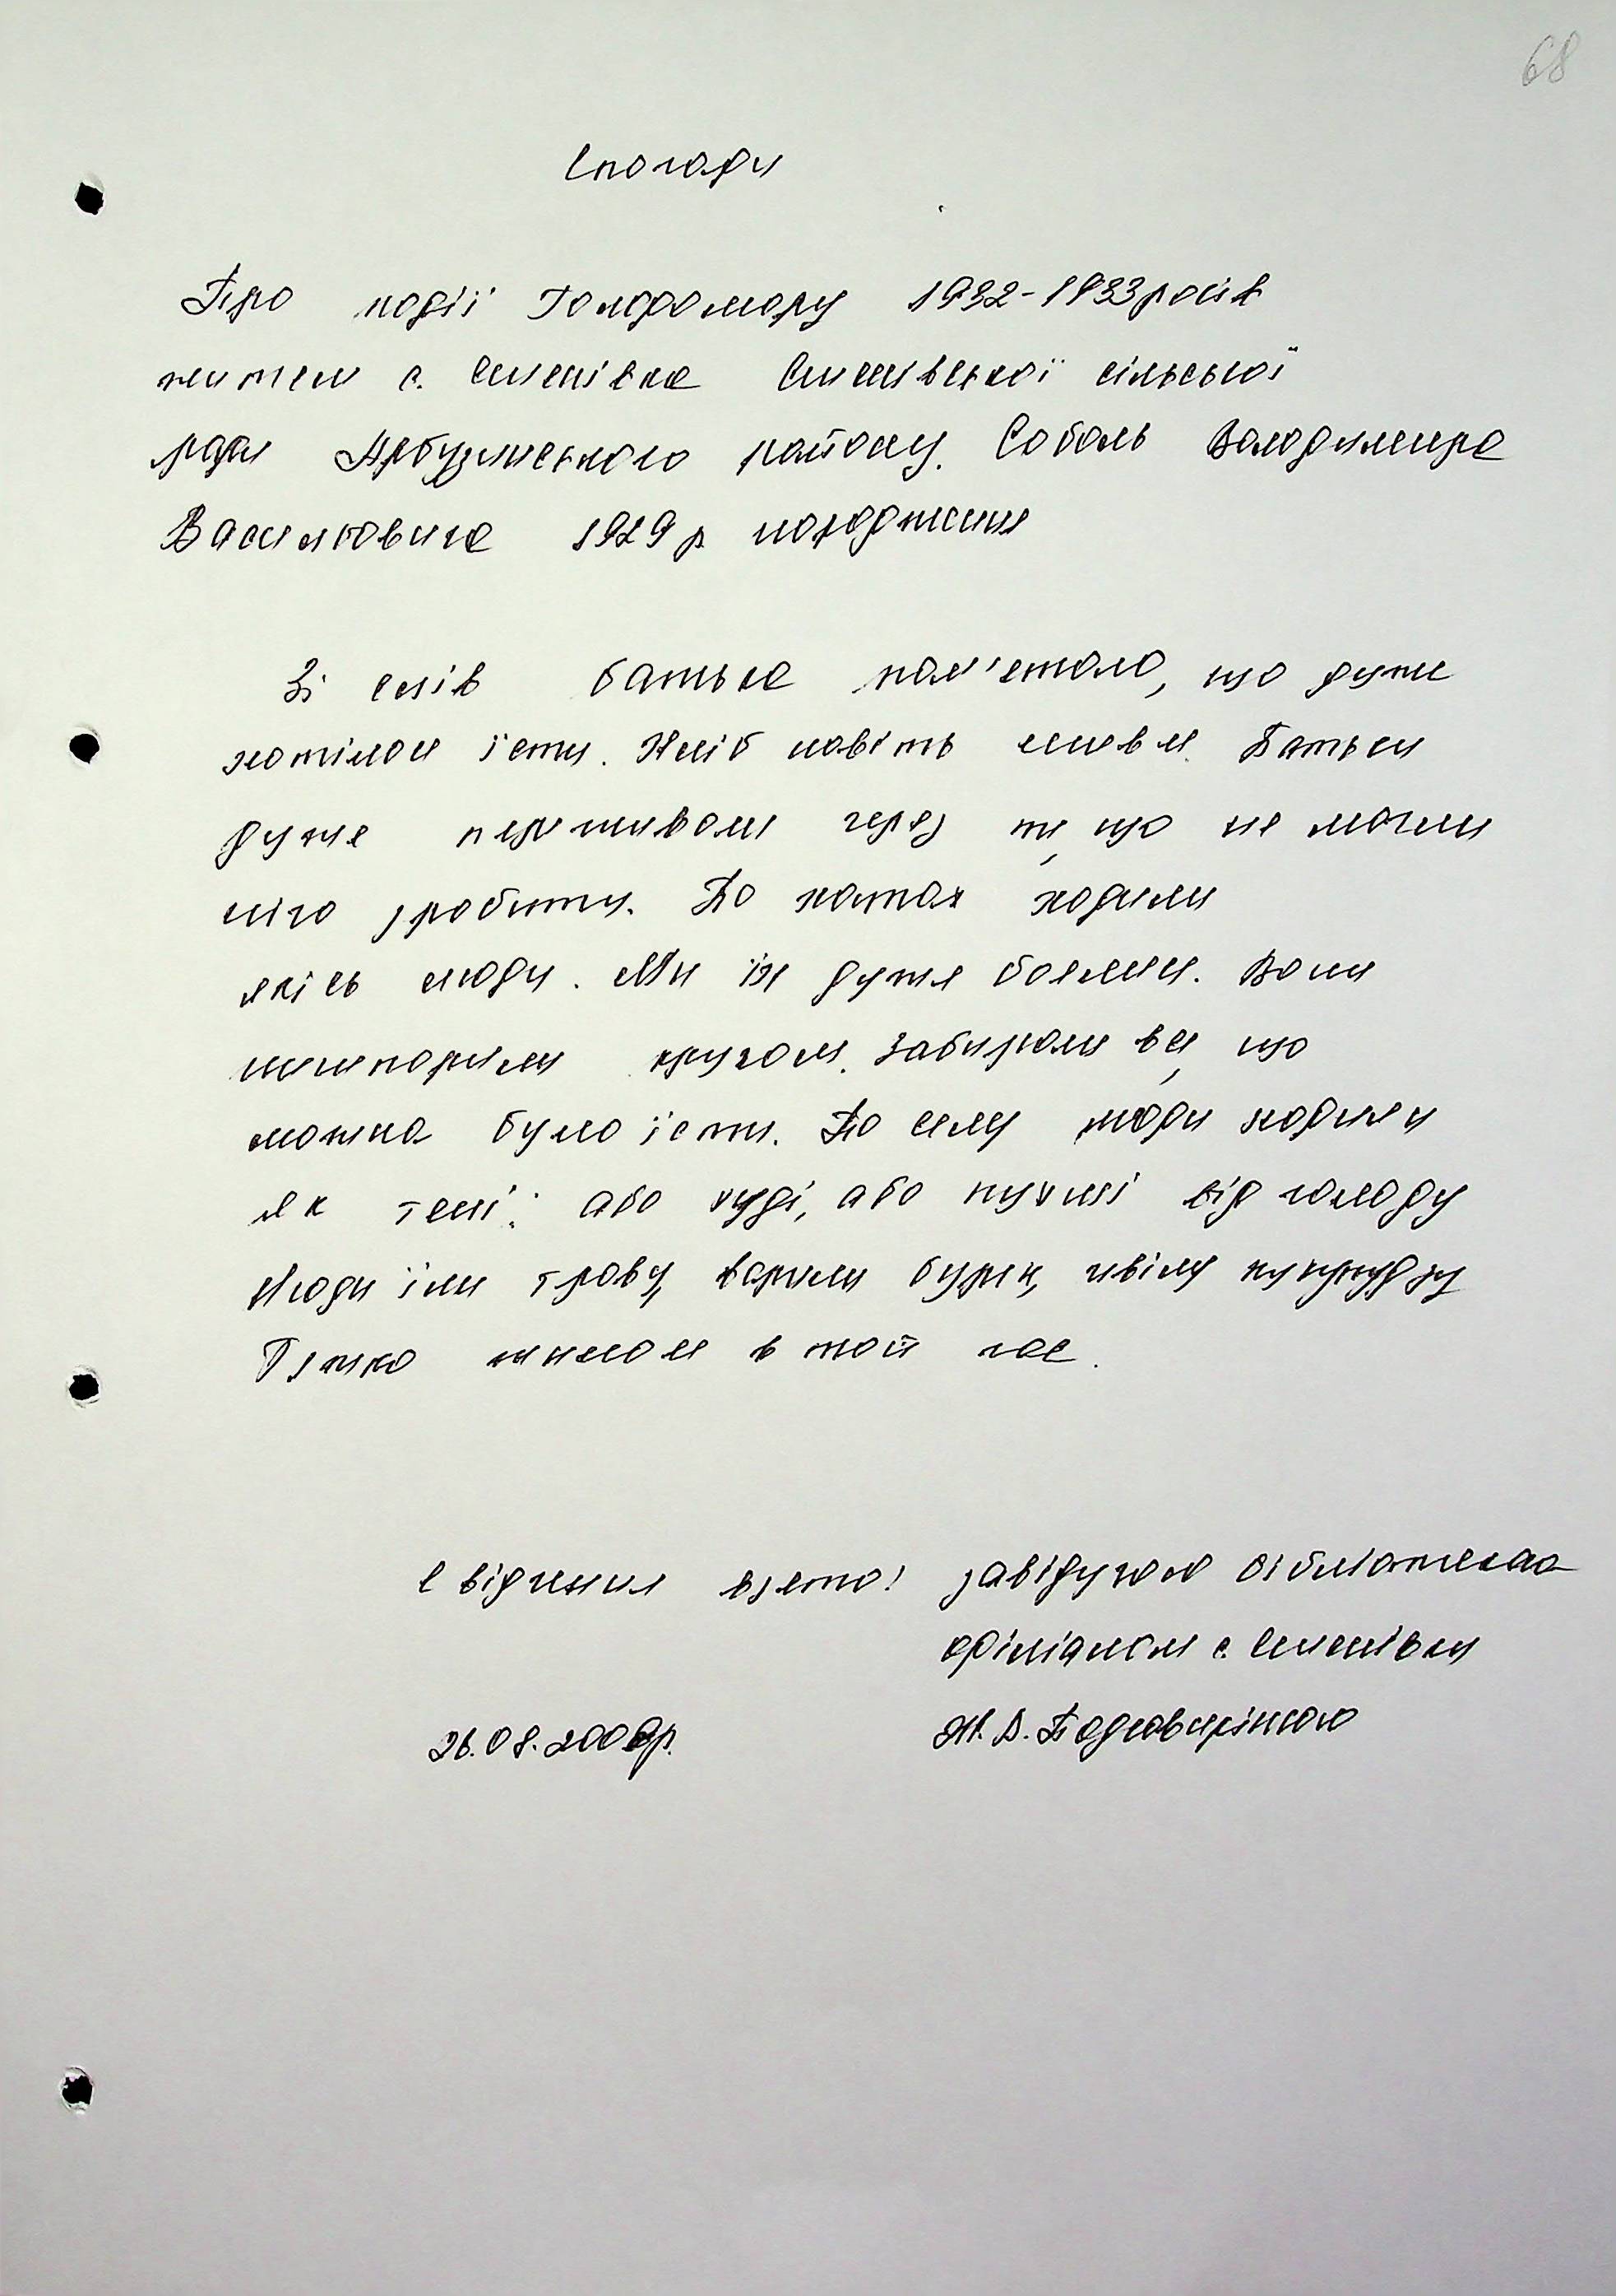 68
Спогади
Про події Голодомору 1932-1933 років
жителя с. Семенівка Семенівської сільської
ради Арбузинського району. Соболь Володимира
Васильовича 1929 р народження
Зі слів батька пам'ятаю, що дуже
хотілося їсти. Хліб навіть снився. Батьки
дуже переживали через те, що не могли
нічо зробити. По хатах ходили
якісь люди. Ми їх дуже боялися. Вони
шипорили кругом. Забирали все, що
можна було їсти. По селу люди ходили
як тені: або худі, або пухлі від голоду
Люди їли траву, варили буряк, цвілу кукурудзу
Тяжко жилося в той час.
Свідчення взято: завідуючою бібліотекою
філіалом с. Семенівки
26.08.2008р. Ж. В.